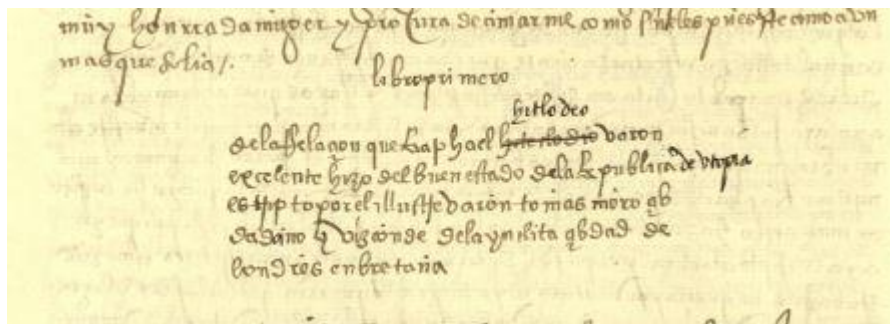 muy honrrada muger y procura de amarme como si ubiesse
mas que solia /.
libro primero
hitlodeo
de la Relaçon que Raphael varon
excelente hizo del buen estado de la Republica de utopia
escripto por el illustre varon tomas moro
dadano y Vizconde de la ynclita qbdad de
londres en bretaña